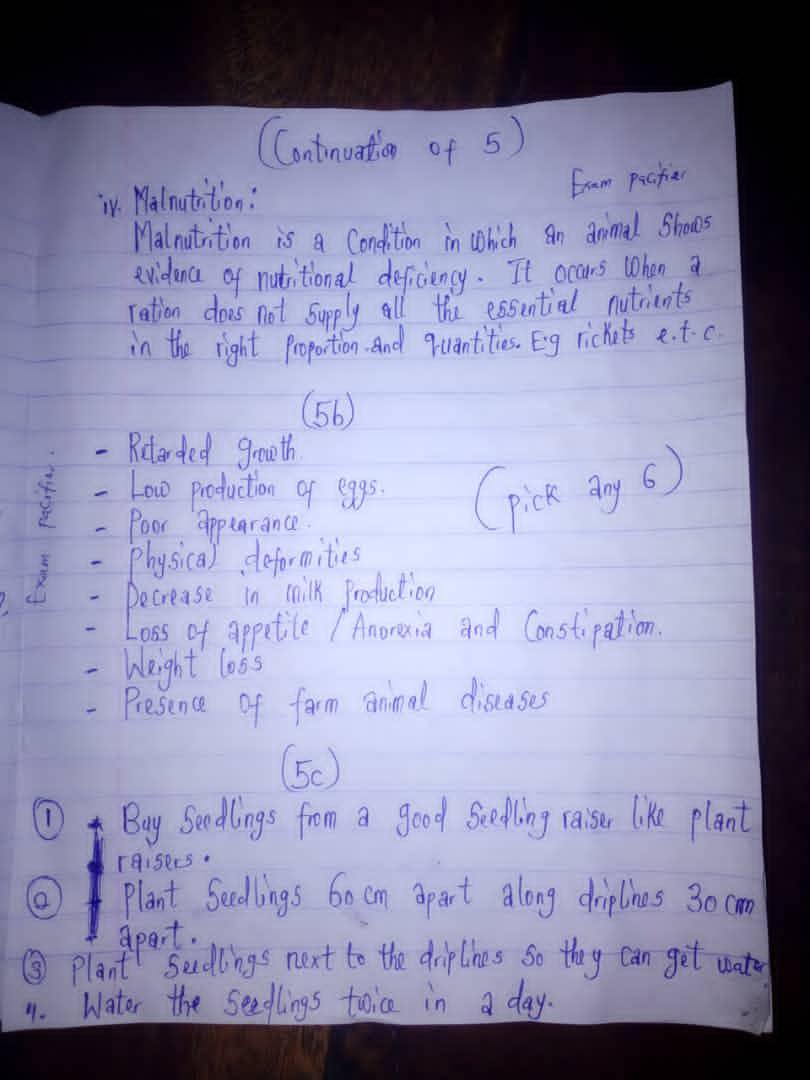 (Continuation of 5)
Exam pacifier
iv. Malnutrition:
Malnutrition is a Condition in which an animal Shows
evidence of nutritional deficiency. It occurs When a
ration does not Supply all the essential nutrients
in the right Proportion and quantities. E.g rickets e.t.c.
(5b)
- Retarded growth
- Low production of eggs.
(pick any 6)
- Poor appearance.
Exam pacifier.
- Physical deformities
- Decrease in milk Production
- Loss of appetite / Anorexia and Constipation.
- Weight loss
- Presence of farm animal diseases
(5c)
① Buy Seedlings from a good Seedling raiser like plant
raisers.
② Plant Seedlings 60 cm apart along driplines 30 cm
apart.
③ Plant Seedlings next to the driplines So they can get water
4. Water the Seedlings twice in a day.